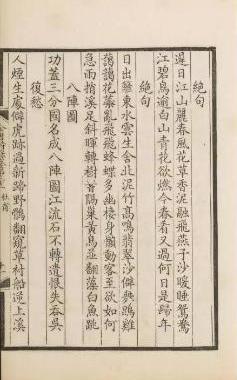 絶句
遲日江山麗春風花草香泥融飛燕子沙暖睡鴛鴦
江碧鳥逾白山青花欲燃今春看又過何日是歸年
絶句
日出籬東水雲生舍北泥竹高鳴翡翠沙僻舞鵾雞
藹藹花蘂亂飛飛蜂蝶多幽棲身懶動客至欲如何
急雨捎溪足斜暉轉樹腰隔巢黃鳥並翻藻白魚跳
八陣圖
功蓋三分國名成八陣圖江流石不轉遺恨失吞吳
復愁
人煙生處僻虎跡過新蹄野鶻翻窺草村船逆上溪